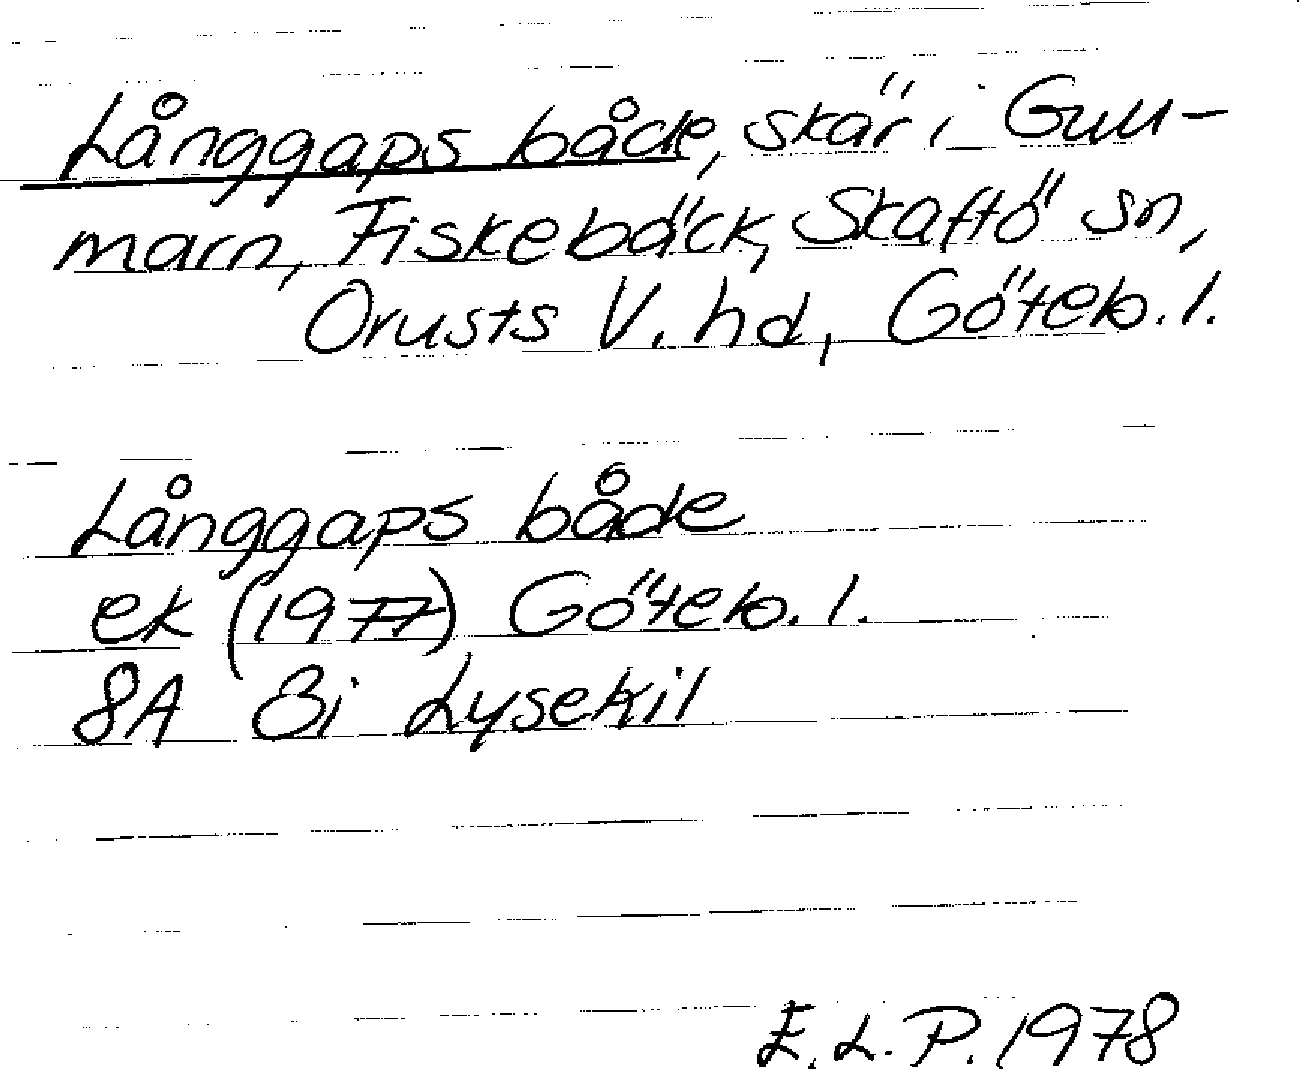 Långgaps både, skär i Gull-
marn, Fiskebäck, Skaftö sn,
Orusts V. hd, Göteb. l.
Långgaps både
ek (1977) Göteb. l.
8A 8i Lysekil
E. L. P. 1978